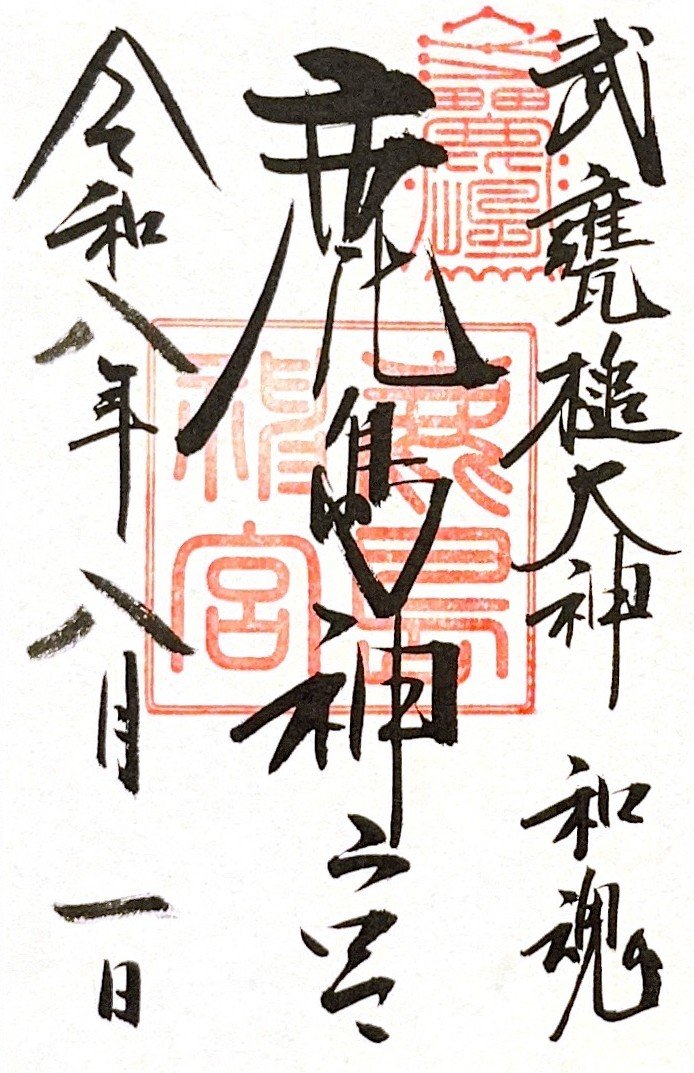 武甕槌大神 和魂
鹿島神宮
令和八年八月一日
鹿島
神宮